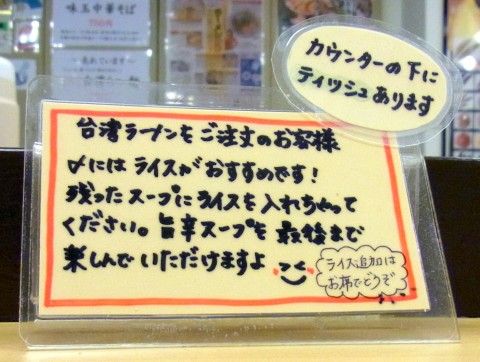 味玉中華そば
750円
カウンターの下に
ティッシュあります
台湾ラーメンをご注文のお客様
〆にはライスがおすすめです！
残ったスープにライスを入れちゃって
ください。旨辛スープを最後まで
楽しんでいただけますよ
ライス追加は
お席でどうぞ